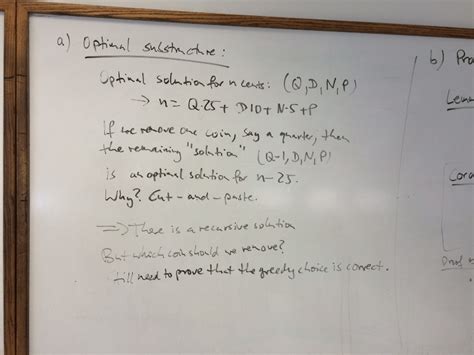 a) Optimal substructure:
Optimal solution for n cents: (Q,D,N,P)
→ n = Q·25 + D10 + N·5 + P
If we remove one coin, say a quarter, then
the remaining "solution" (Q-1,D,N,P)
is an optimal solution for n-25.
Why? Cut-and-paste.
⇒ There is a recursive solution
But which coin should we remove?
still need to prove that the greedy choice is correct.
b)